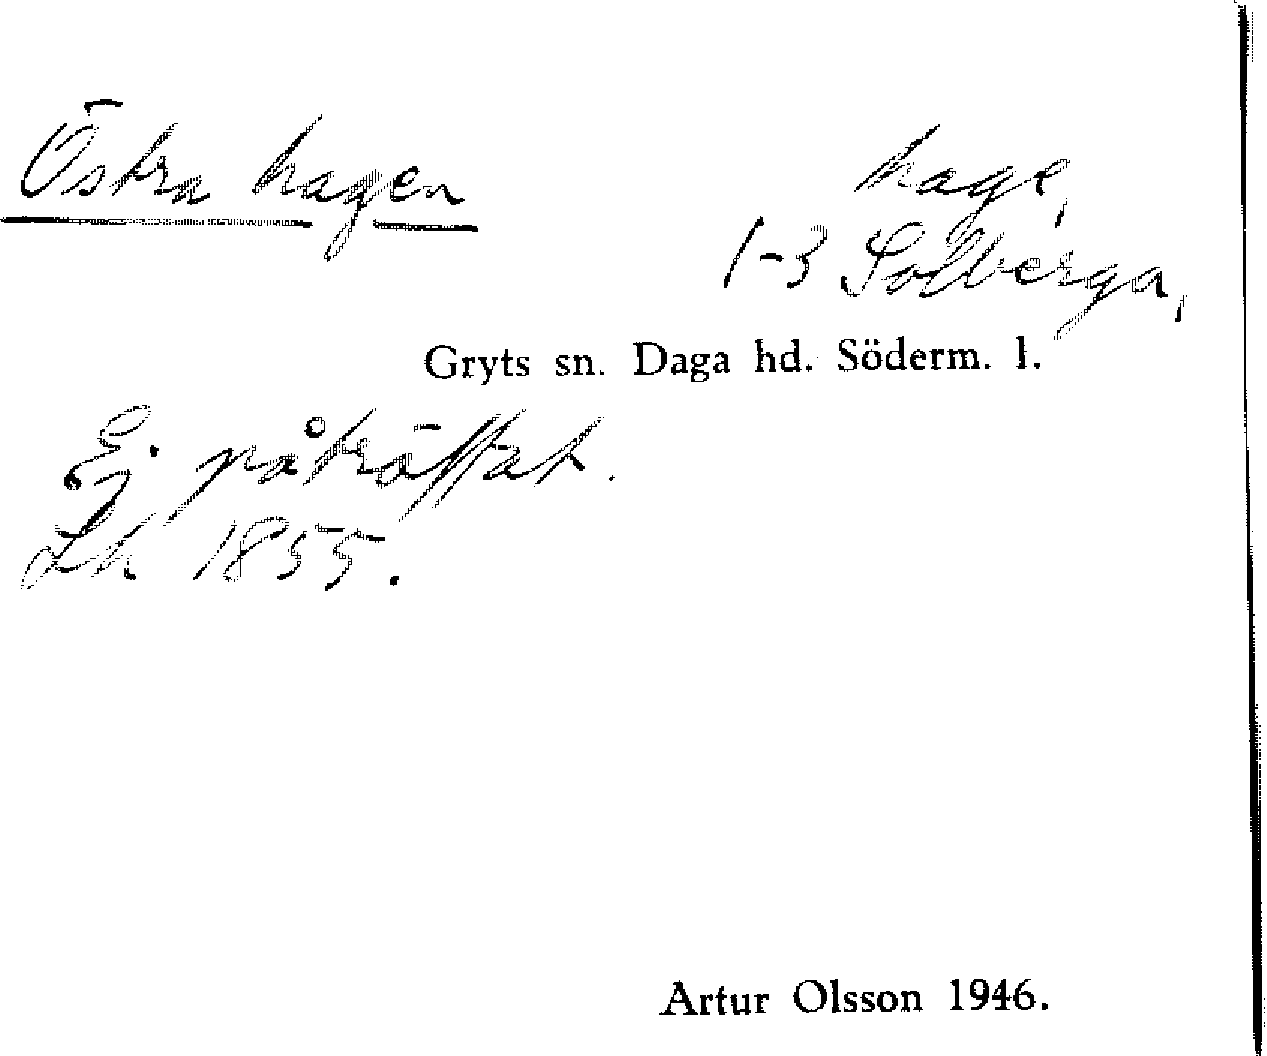 Östra hagen
hage,
1-3 Solberga,
Gryts sn. Daga hd. Söderm. l.
Ej påträffat.
Lh 1855.
Artur Olsson 1946.